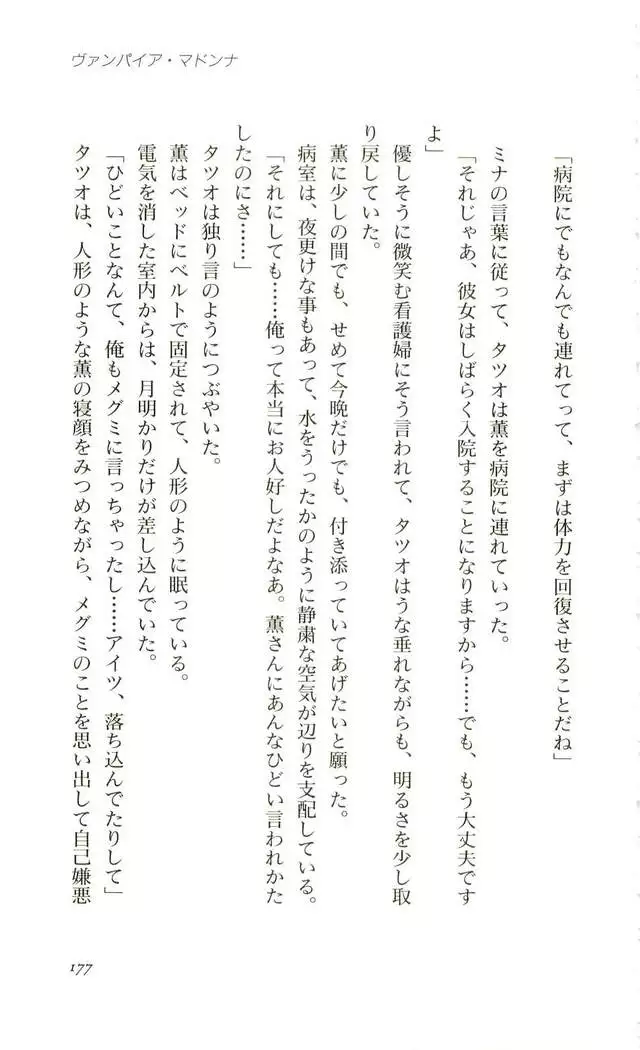 ヴァンパイア・マドンナ
「病院にでもなんでも連れてって、まずは体力を回復させることだね」
ミナの言葉に従って、タツオは薫を病院に連れていった。
「それじゃあ、彼女はしばらく入院することになりますから……でも、もう大丈夫です
よ」
優しそうに微笑む看護婦にそう言われて、タツオはうな垂れながらも、明るさを少し取
り戻していた。
薫に少しの間でも、せめて今晩だけでも、付き添っていてあげたいと願った。
病室は、夜更けな事もあって、水をうったかのように静粛な空気が辺りを支配している。
「それにしても……俺って本当にお人好しだよなあ。薫さんにあんなひどい言われかた
したのにさ……」
タツオは独り言のようにつぶやいた。
薫はベッドにベルトで固定されて、人形のように眠っている。
電気を消した室内からは、月明かりだけが差し込んでいた。
「ひどいことなんて、俺もメグミに言っちゃったし……アイツ、落ち込んでたりして」
タツオは、人形のような薫の寝顔をみつめながら、メグミのことを思い出して自己嫌悪
177